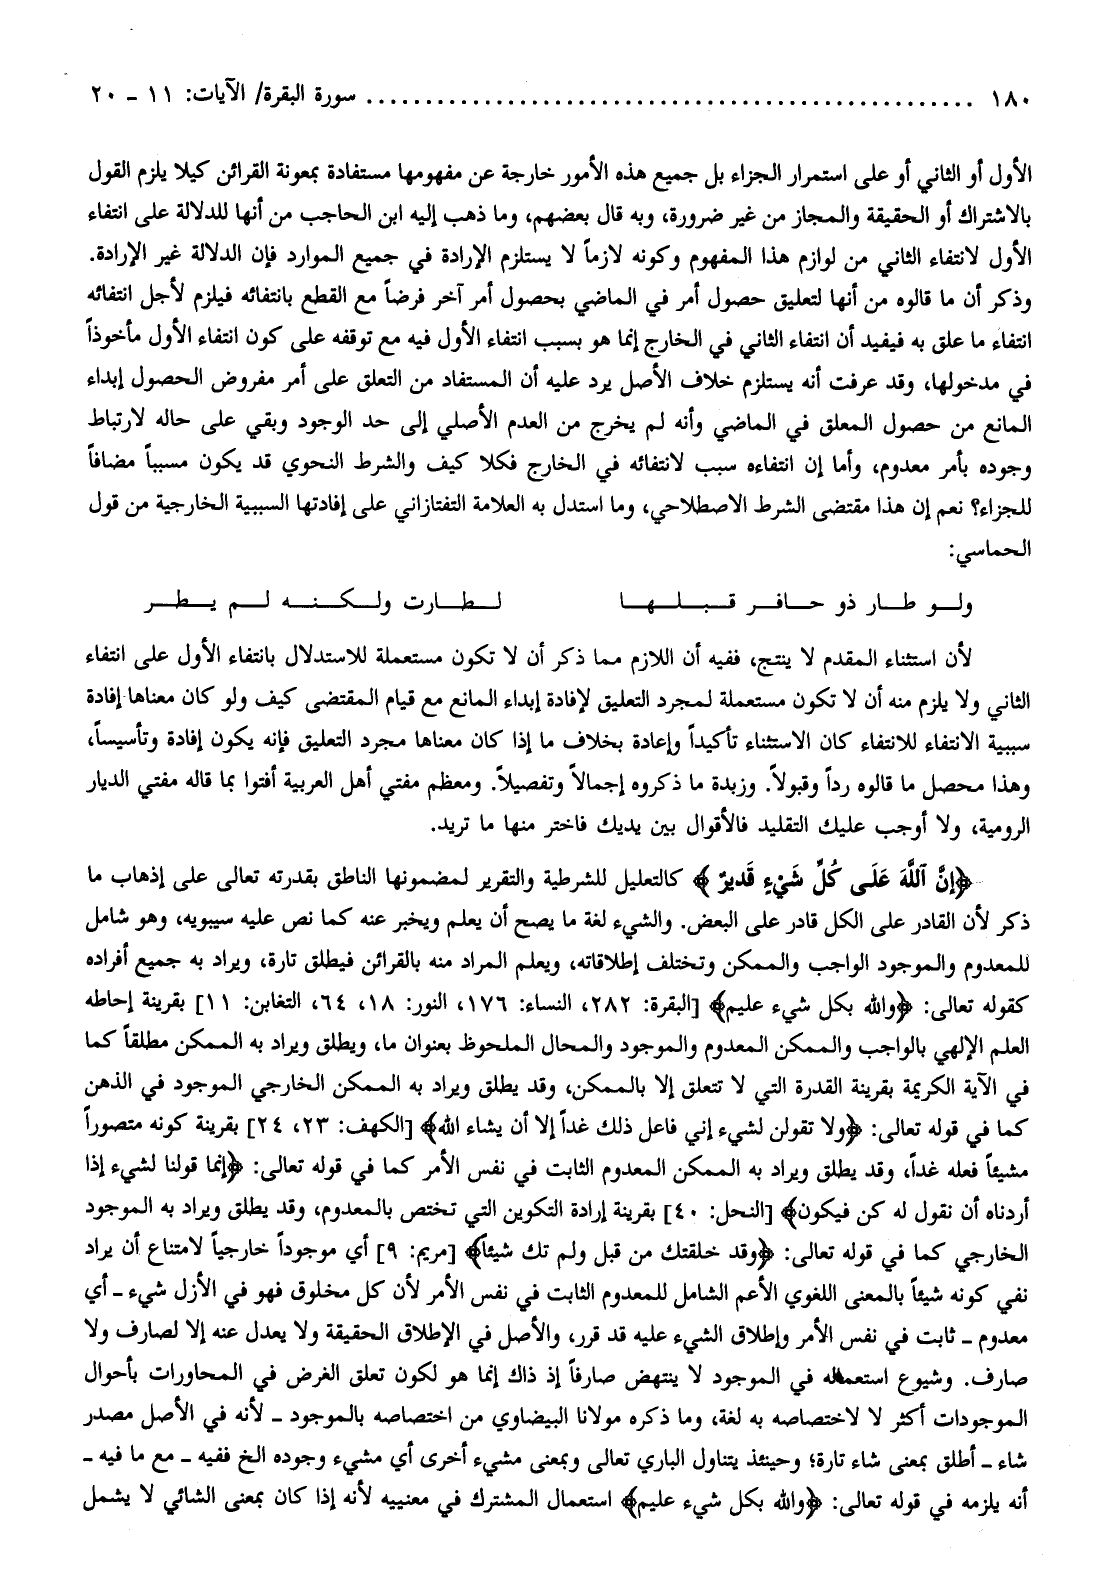 ١٨٠ ................................................ سورة البقرة/ الآيات: ١١ ـ ٢٠
الأول أو الثاني أو على استمرار الجزاء بل جميع هذه الأمور خارجة عن مفهومها مستفادة بمعونة القرائن كيلا يلزم القول
بالاشتراك أو الحقيقة والمجاز من غير ضرورة، وبه قال بعضهم، وما ذهب إليه ابن الحاجب من أنها للدلالة على انتفاء
الأول لانتفاء الثاني من لوازم هذا المفهوم وكونه لازماً لا يستلزم الإرادة في جميع الموارد فإن الدلالة غير الإرادة.
وذكر أن ما قالوه من أنها لتعليق حصول أمر في الماضي بحصول أمر آخر فرضاً مع القطع بانتفائه فيلزم لأجل انتفائه
انتفاء ما علق به فيفيد أن انتفاء الثاني في الخارج إنما هو بسبب انتفاء الأول فيه مع توقفه على كون انتفاء الأول مأخوذاً
في مدخولها، وقد عرفت أنه يستلزم خلاف الأصل يرد عليه أن المستفاد من التعلق على أمر مفروض الحصول إبداء
المانع من حصول المعلق في الماضي وأنه لم يخرج من العدم الأصلي إلى حد الوجود وبقي على حاله لارتباط
وجوده بأمر معدوم، وأما إن انتفاءه سبب لانتفائه في الخارج فكلا كيف والشرط النحوي قد يكون مسبباً مضافاً
للجزاء؟ نعم إن هذا مقتضى الشرط الاصطلاحي، وما استدل به العلامة التفتازاني على إفادتها السببية الخارجية من قول
الحماسي:
ولـو طـار ذو حـافـر قـبـلـهـا     لـطـارت ولـكـنـه لـم يـطـر
لأن استثناء المقدم لا ينتج، ففيه أن اللازم مما ذكر أن لا تكون مستعملة للاستدلال بانتفاء الأول على انتفاء
الثاني ولا يلزم منه أن لا تكون مستعملة لمجرد التعليق لإفادة إبداء المانع مع قيام المقتضى كيف ولو كان معناها إفادة
سببية الانتفاء للانتفاء كان الاستثناء تأكيداً وإعادة بخلاف ما إذا كان معناها مجرد التعليق فإنه يكون إفادة وتأسيساً،
وهذا محصل ما قالوه رداً وقبولاً. وزبدة ما ذكروه إجمالاً وتفصيلاً. ومعظم مفتي أهل العربية أفتوا بما قاله مفتي الديار
الرومية، ولا أوجب عليك التقليد فالأقوال بين يديك فاختر منها ما تريد.
﴿إِنَّ ٱللَّهَ عَلَى كُلِّ شَيْءٍ قَدِيرٌ﴾ كالتعليل للشرطية والتقرير لمضمونها الناطق بقدرته تعالى على إذهاب ما
ذكر لأن القادر على الكل قادر على البعض. والشيء لغة ما يصح أن يعلم ويخبر عنه كما نص عليه سيبويه، وهو شامل
للمعدوم والموجود الواجب والممكن وتختلف إطلاقاته، ويعلم المراد منه بالقرائن فيطلق تارة، ويراد به جميع أفراده
كقوله تعالى: ﴿والله بكل شيء عليم﴾ [البقرة: ٢٨٢، النساء: ١٧٦، النور: ١٨، ٦٤، التغابن: ١١] بقرينة إحاطه
العلم الإلهي بالواجب والممكن المعدوم والموجود والمحال الملحوظ بعنوان ما، ويطلق ويراد به الممكن مطلقاً كما
في الآية الكريمة بقرينة القدرة التي لا تتعلق إلا بالممكن، وقد يطلق ويراد به الممكن الخارجي الموجود في الذهن
كما في قوله تعالى: ﴿ولا تقولن لشيء إني فاعل ذلك غداً إلا أن يشاء الله﴾ [الكهف: ٢٣، ٢٤] بقرينة كونه متصوراً
مشيئاً فعله غداً، وقد يطلق ويراد به الممكن المعدوم الثابت في نفس الأمر كما في قوله تعالى: ﴿إنما قولنا لشيء إذا
أردناه أن نقول له كن فيكون﴾ [النحل: ٤٠] بقرينة إرادة التكوين التي تختص بالمعدوم، وقد يطلق ويراد به الموجود
الخارجي كما في قوله تعالى: ﴿وقد خلقتك من قبل ولم تك شيئاً﴾ [مريم: ٩] أي موجوداً خارجياً لامتناع أن يراد
نفي كونه شيئاً بالمعنى اللغوي الأعم الشامل للمعدوم الثابت في نفس الأمر لأن كل مخلوق فهو في الأزل شيء ـ أي
معدوم ـ ثابت في نفس الأمر وإطلاق الشيء عليه قد قرر، والأصل في الإطلاق الحقيقة ولا يعدل عنه إلا لصارف ولا
صارف. وشيوع استعماله في الموجود لا ينتهض صارفاً إذ ذاك إنما هو لكون تعلق الغرض في المحاورات بأحوال
الموجودات أكثر لا لاختصاصه به لغة، وما ذكره مولانا البيضاوي من اختصاصه بالموجود ـ لأنه في الأصل مصدر
شاء ـ أطلق بمعنى شاء تارة؛ وحينئذ يتناول الباري تعالى وبمعنى مشيء أخرى أي مشيء وجوده الخ ففيه ـ مع ما فيه ـ
أنه يلزمه في قوله تعالى: ﴿والله بكل شيء عليم﴾ استعمال المشترك في معنييه لأنه إذا كان بمعنى الشائي لا يشمل